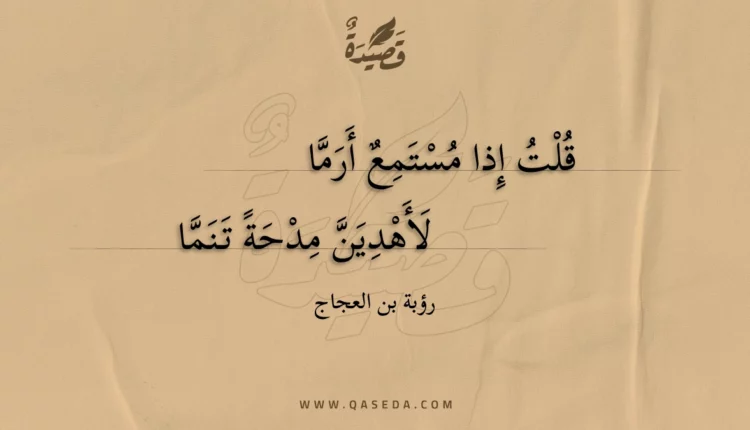 قَصِيْدَةٌ
قُلْتُ إِذا مُسْتَمِعٌ أَرَمَّا
لَأَهْدِيَنَّ مِدْحَةً تَنَمَّا
رؤبة بن العجاج
WWW.QASEDA.COM